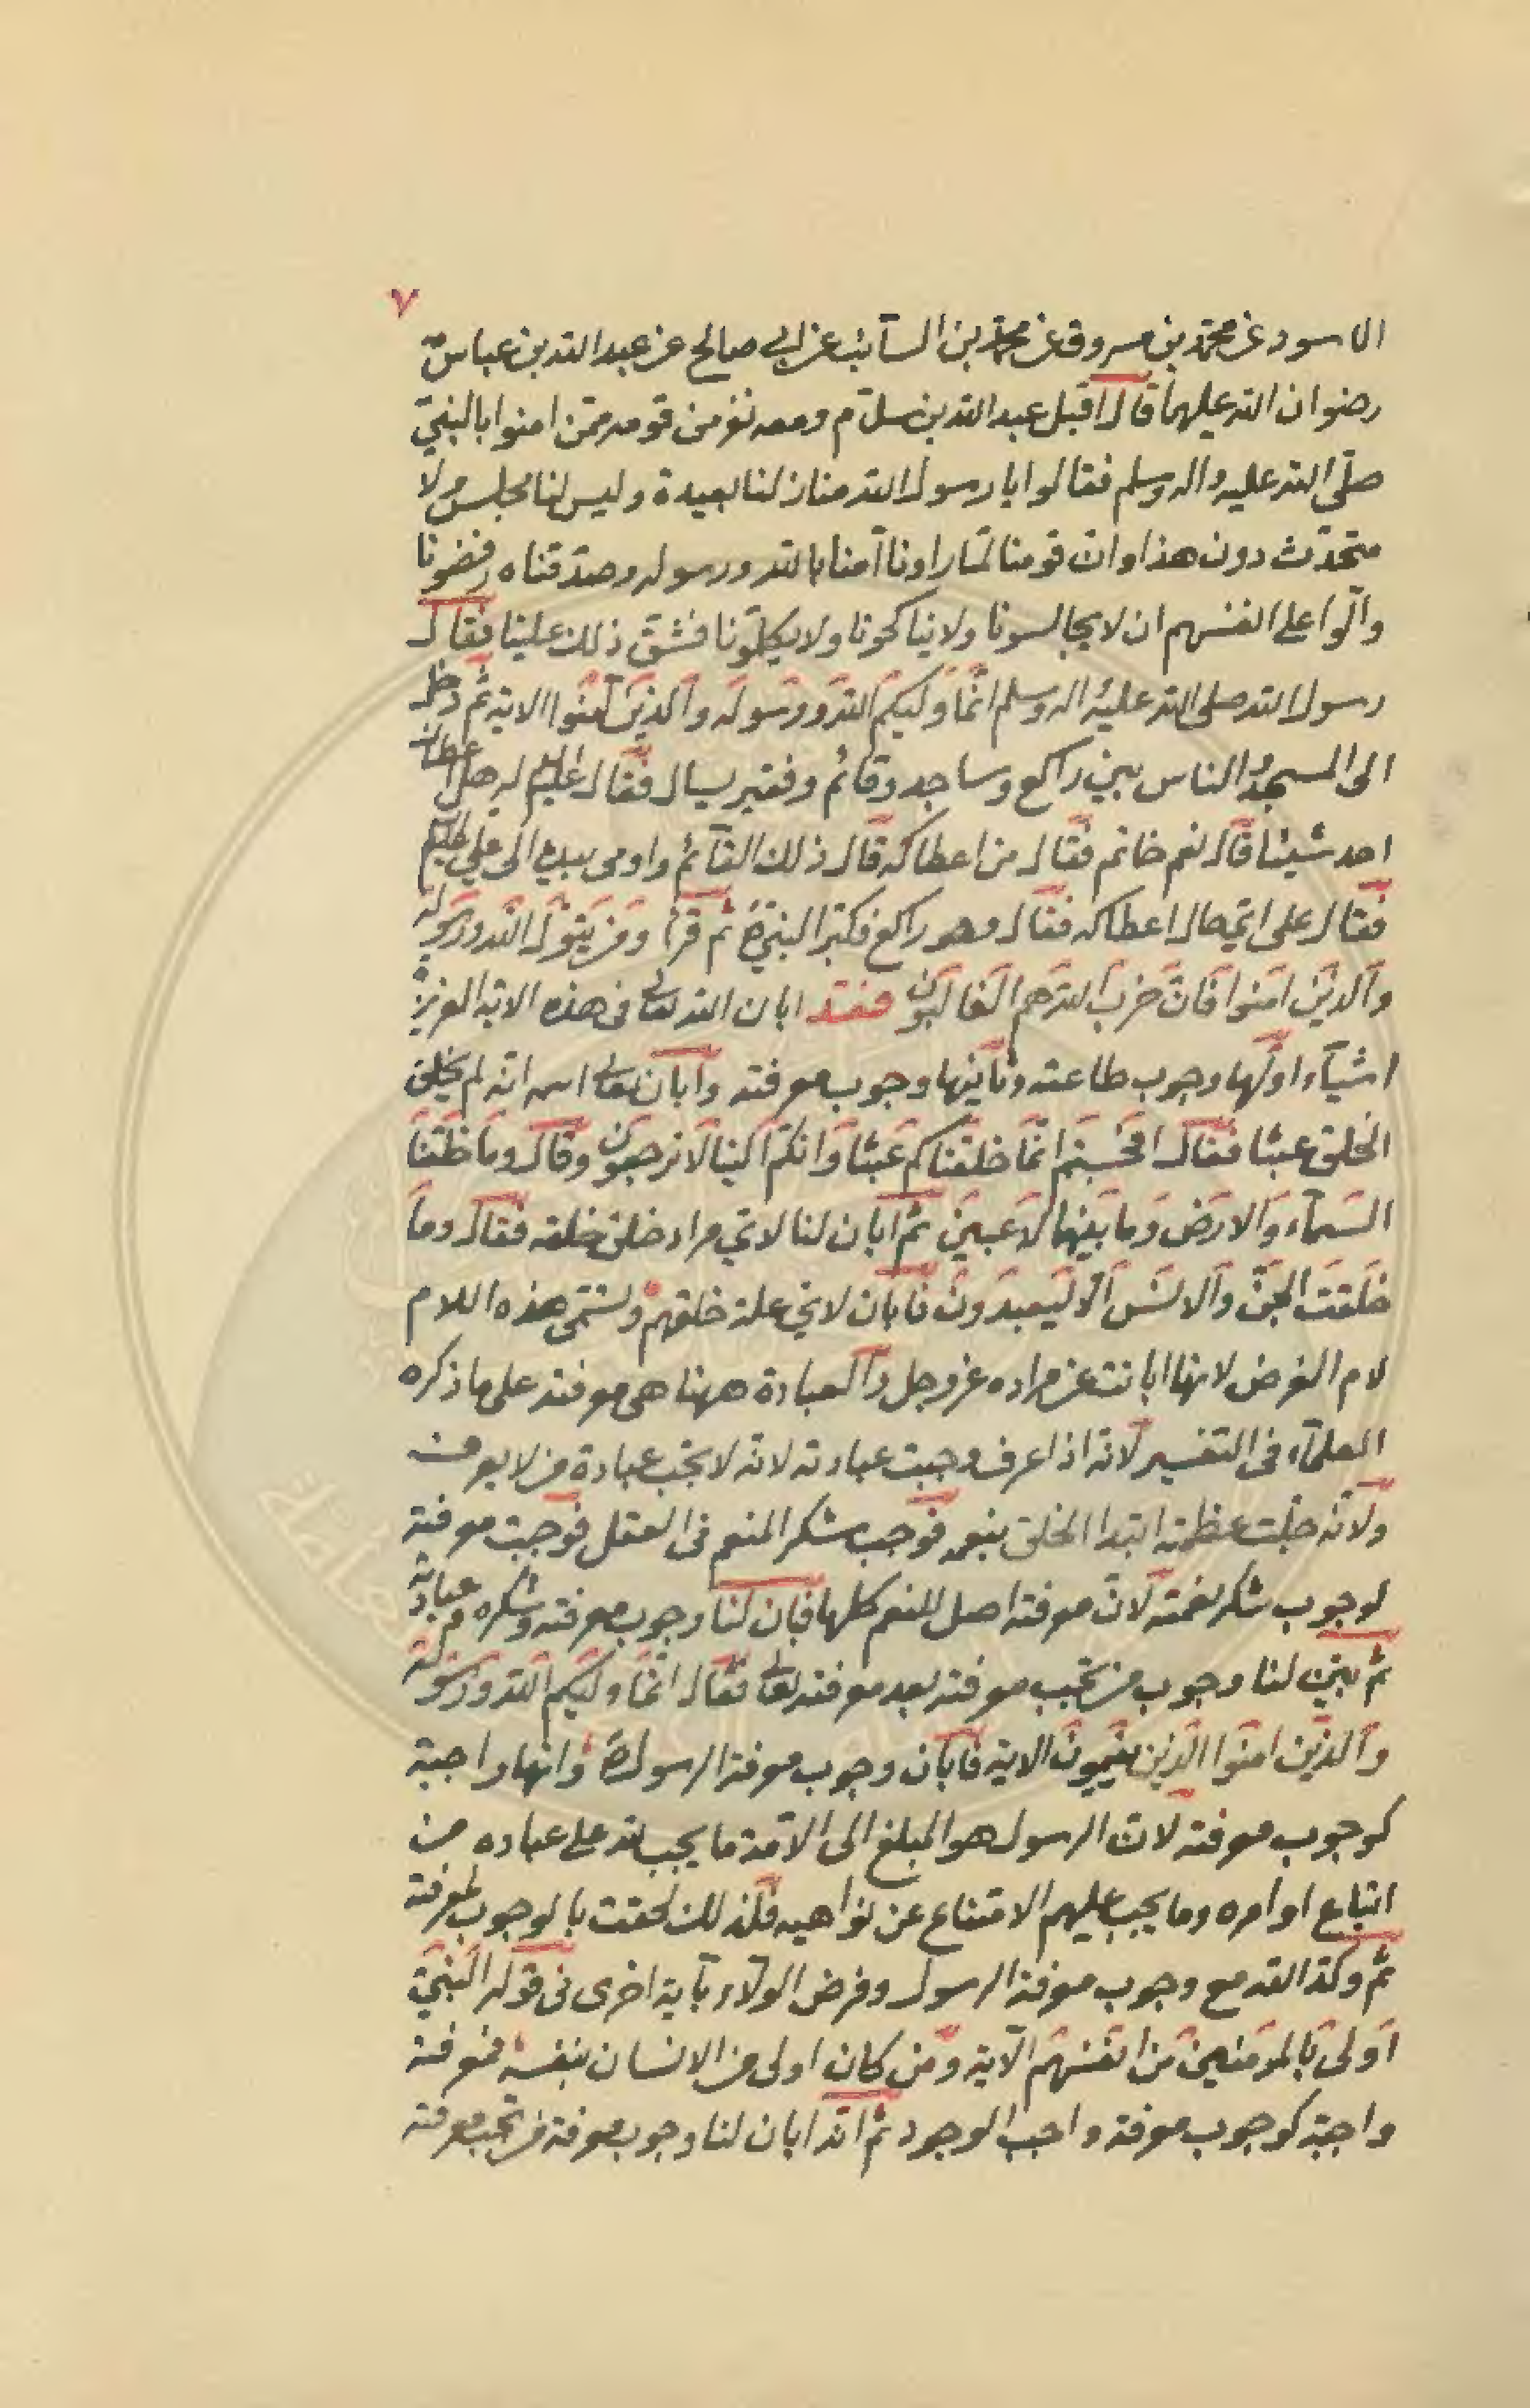 ٧
الاسود عن محمد بن مسروق عن محمد بن السآئب عن ابي صالح عن عبد الله بن عباس
رضوان الله عليهما قال اقبل عبد الله بن سلام ومعه نفر من قومه ممّن امنوا بالنبيّ
صلّى الله عليه واله وسلم فقالوا يا رسول الله منازلنا بعيدة وليس لنا مجلس ولا
متحدّث دون هذا وانّ قومنا لمّا راونا آمنا بالله ورسوله وصدّقناه رفضونا
وآلوا على انفسهم ان لا يجالسونا ولا يناكحونا ولا يكلمونا فشقّ ذلك علينا فقال
رسول الله صلى الله عليه واله وسلم انّما وليكم الله ورسوله والذين آمنوا الاية ثم دخل
الى المسجد والناس بين راكع وساجد وقائم وفقير يسال فقال عليه السلم له هل اعطاك
احد شيئا قال نعم خاتم فقال من اعطاكه قال ذلك القآئم واومى بيده الى علي عليه السلم
فقال على ايّ حال اعطاكه فقال وهو راكع فكبّر النبيّ ص ثم قرأ ومن يتول الله ورسوله
والذين امنوا فانّ حزب الله هم الغالبون فقد ابان الله تعالى في هذه الاية العزيزة
اشيآء اولها وجوب طاعته وثانيها وجوب معرفته وابان تعالى اسمه انّه لم يخلق
الخلق عبثا فقال افحسبتم انّما خلقناكم عبثا وانكم الينا لا ترجعون وقال وما خلقنا
السمآء والارض وما بينهما لاعبين ثم ابان لنا لايّ مراد خلق خلقه فقال وما
خلقت الجنّ والانس الّا ليعبدون فابان لايّ علة خلقهم وتسمّى هذه اللام
لام الغرض لانها ابانت عن مراده عز وجل والعبادة ههنا هي معرفته على ما ذكره
العلمآء في التفسير لانّه اذا عرف وجبت عبادته لانه لا تجب عبادة من لا يعرف
ولانّه جلّت عظمته ابتدا الخلق بنعمه فوجب شكر المنعم في العقل فوجبت معرفته
لوجوب شكر نعمته لانّ معرفته اصل للنعم كلها فبان لنا وجوب معرفته وشكره وعبادته
ثم بين لنا وجوب من تجب معرفته بعد معرفته تعالى فقال انّما وليكم الله ورسوله
والذين امنوا الذين يقيمون الاية فابان وجوب معرفة الرسول ص وانها واجبة
كوجوب معرفته لانّ الرسول هو المبلغ الى الامّة ما يجب لله على عباده من
اتباع اوامره وما يجب عليهم الامتناع عن نواهيه فلذلك لحقت بالوجوب لمعرفته
ثم وكد الله مع وجوب معرفة الرسول وفرض الولآء بآية اخرى في قوله النبيّ
اولى بالمؤمنين من انفسهم الآية ومن كان اولى من الانسان بنفسه فمعرفته
واجبة كوجوب معرفة واجب الوجود ثم انّه ابان لنا وجوب معرفة من تجب معرفته